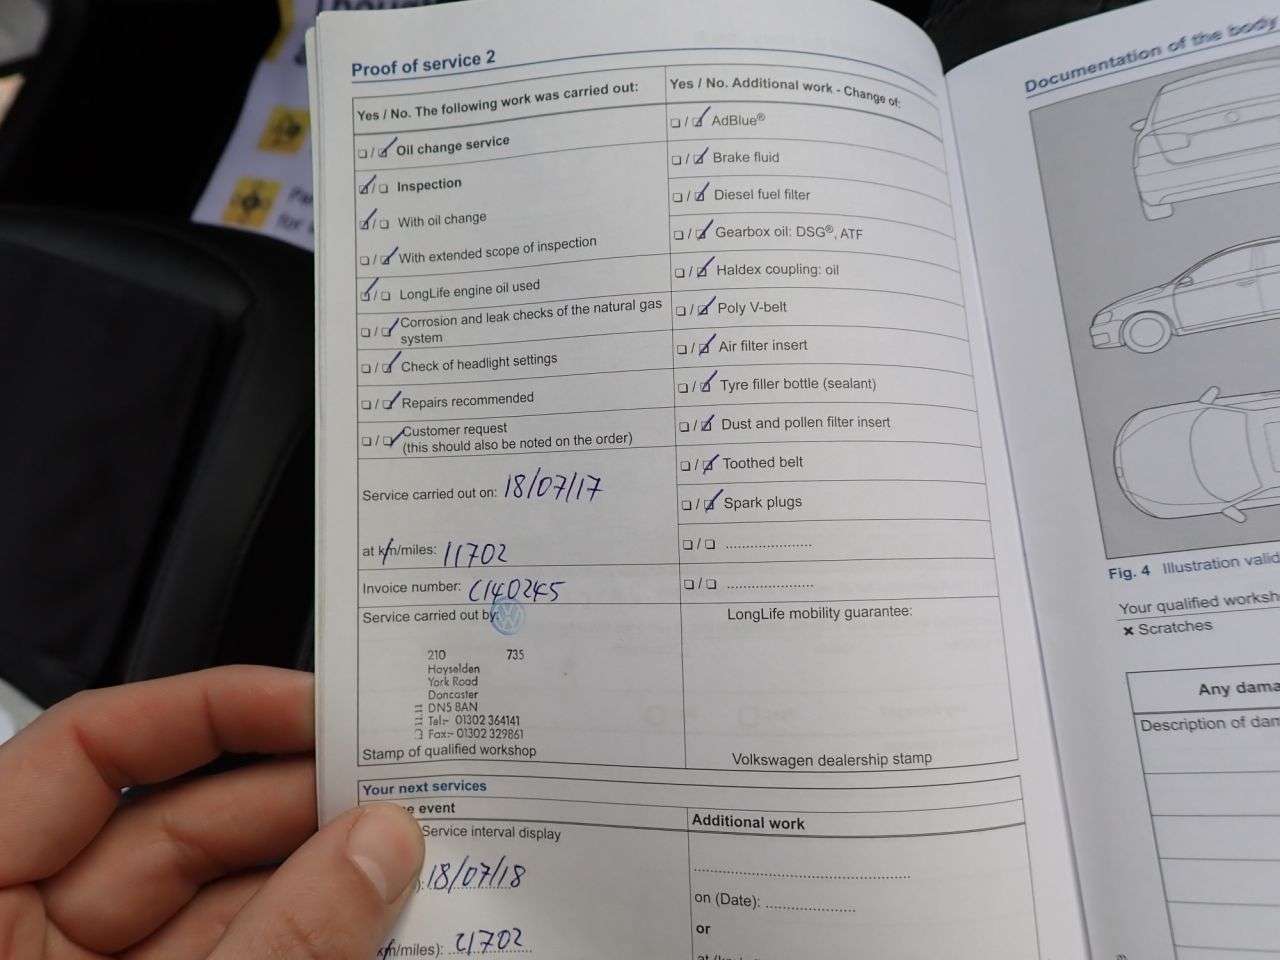 Proof of service 2
Yes / No. The following work was carried out:
☐ / ☑ Oil change service
☑ / ☐ Inspection
☑ / ☐ With oil change
☐ / ☑ With extended scope of inspection
☑ / ☐ LongLife engine oil used
☐ / ☑ Corrosion and leak checks of the natural gas
system
☐ / ☑ Check of headlight settings
☐ / ☑ Repairs recommended
☐ / ☑ Customer request
(this should also be noted on the order)
Service carried out on: 18/07/17
at km/miles: 11702
Invoice number: C140245
Service carried out by:
210 735
Hayselden
York Road
Doncaster
DN5 8AN
Tel:- 01302 364141
Fax:- 01302 329861
Stamp of qualified workshop
Yes / No. Additional work - Change of:
☐ / ☑ AdBlue®
☐ / ☑ Brake fluid
☐ / ☑ Diesel fuel filter
☐ / ☑ Gearbox oil: DSG®, ATF
☐ / ☑ Haldex coupling: oil
☐ / ☑ Poly V-belt
☐ / ☑ Air filter insert
☐ / ☑ Tyre filler bottle (sealant)
☐ / ☑ Dust and pollen filter insert
☐ / ☑ Toothed belt
☐ / ☑ Spark plugs
☐ / ☐ ......................
☐ / ☐ ......................
LongLife mobility guarantee:
Volkswagen dealership stamp
Your next services
event
Service interval display
): 18/07/18
km/miles): 21702
Additional work
on (Date): ....................
or
Documentation of the body
Fig. 4 Illustration valid
Your qualified worksh
× Scratches
Any dama
Description of dam